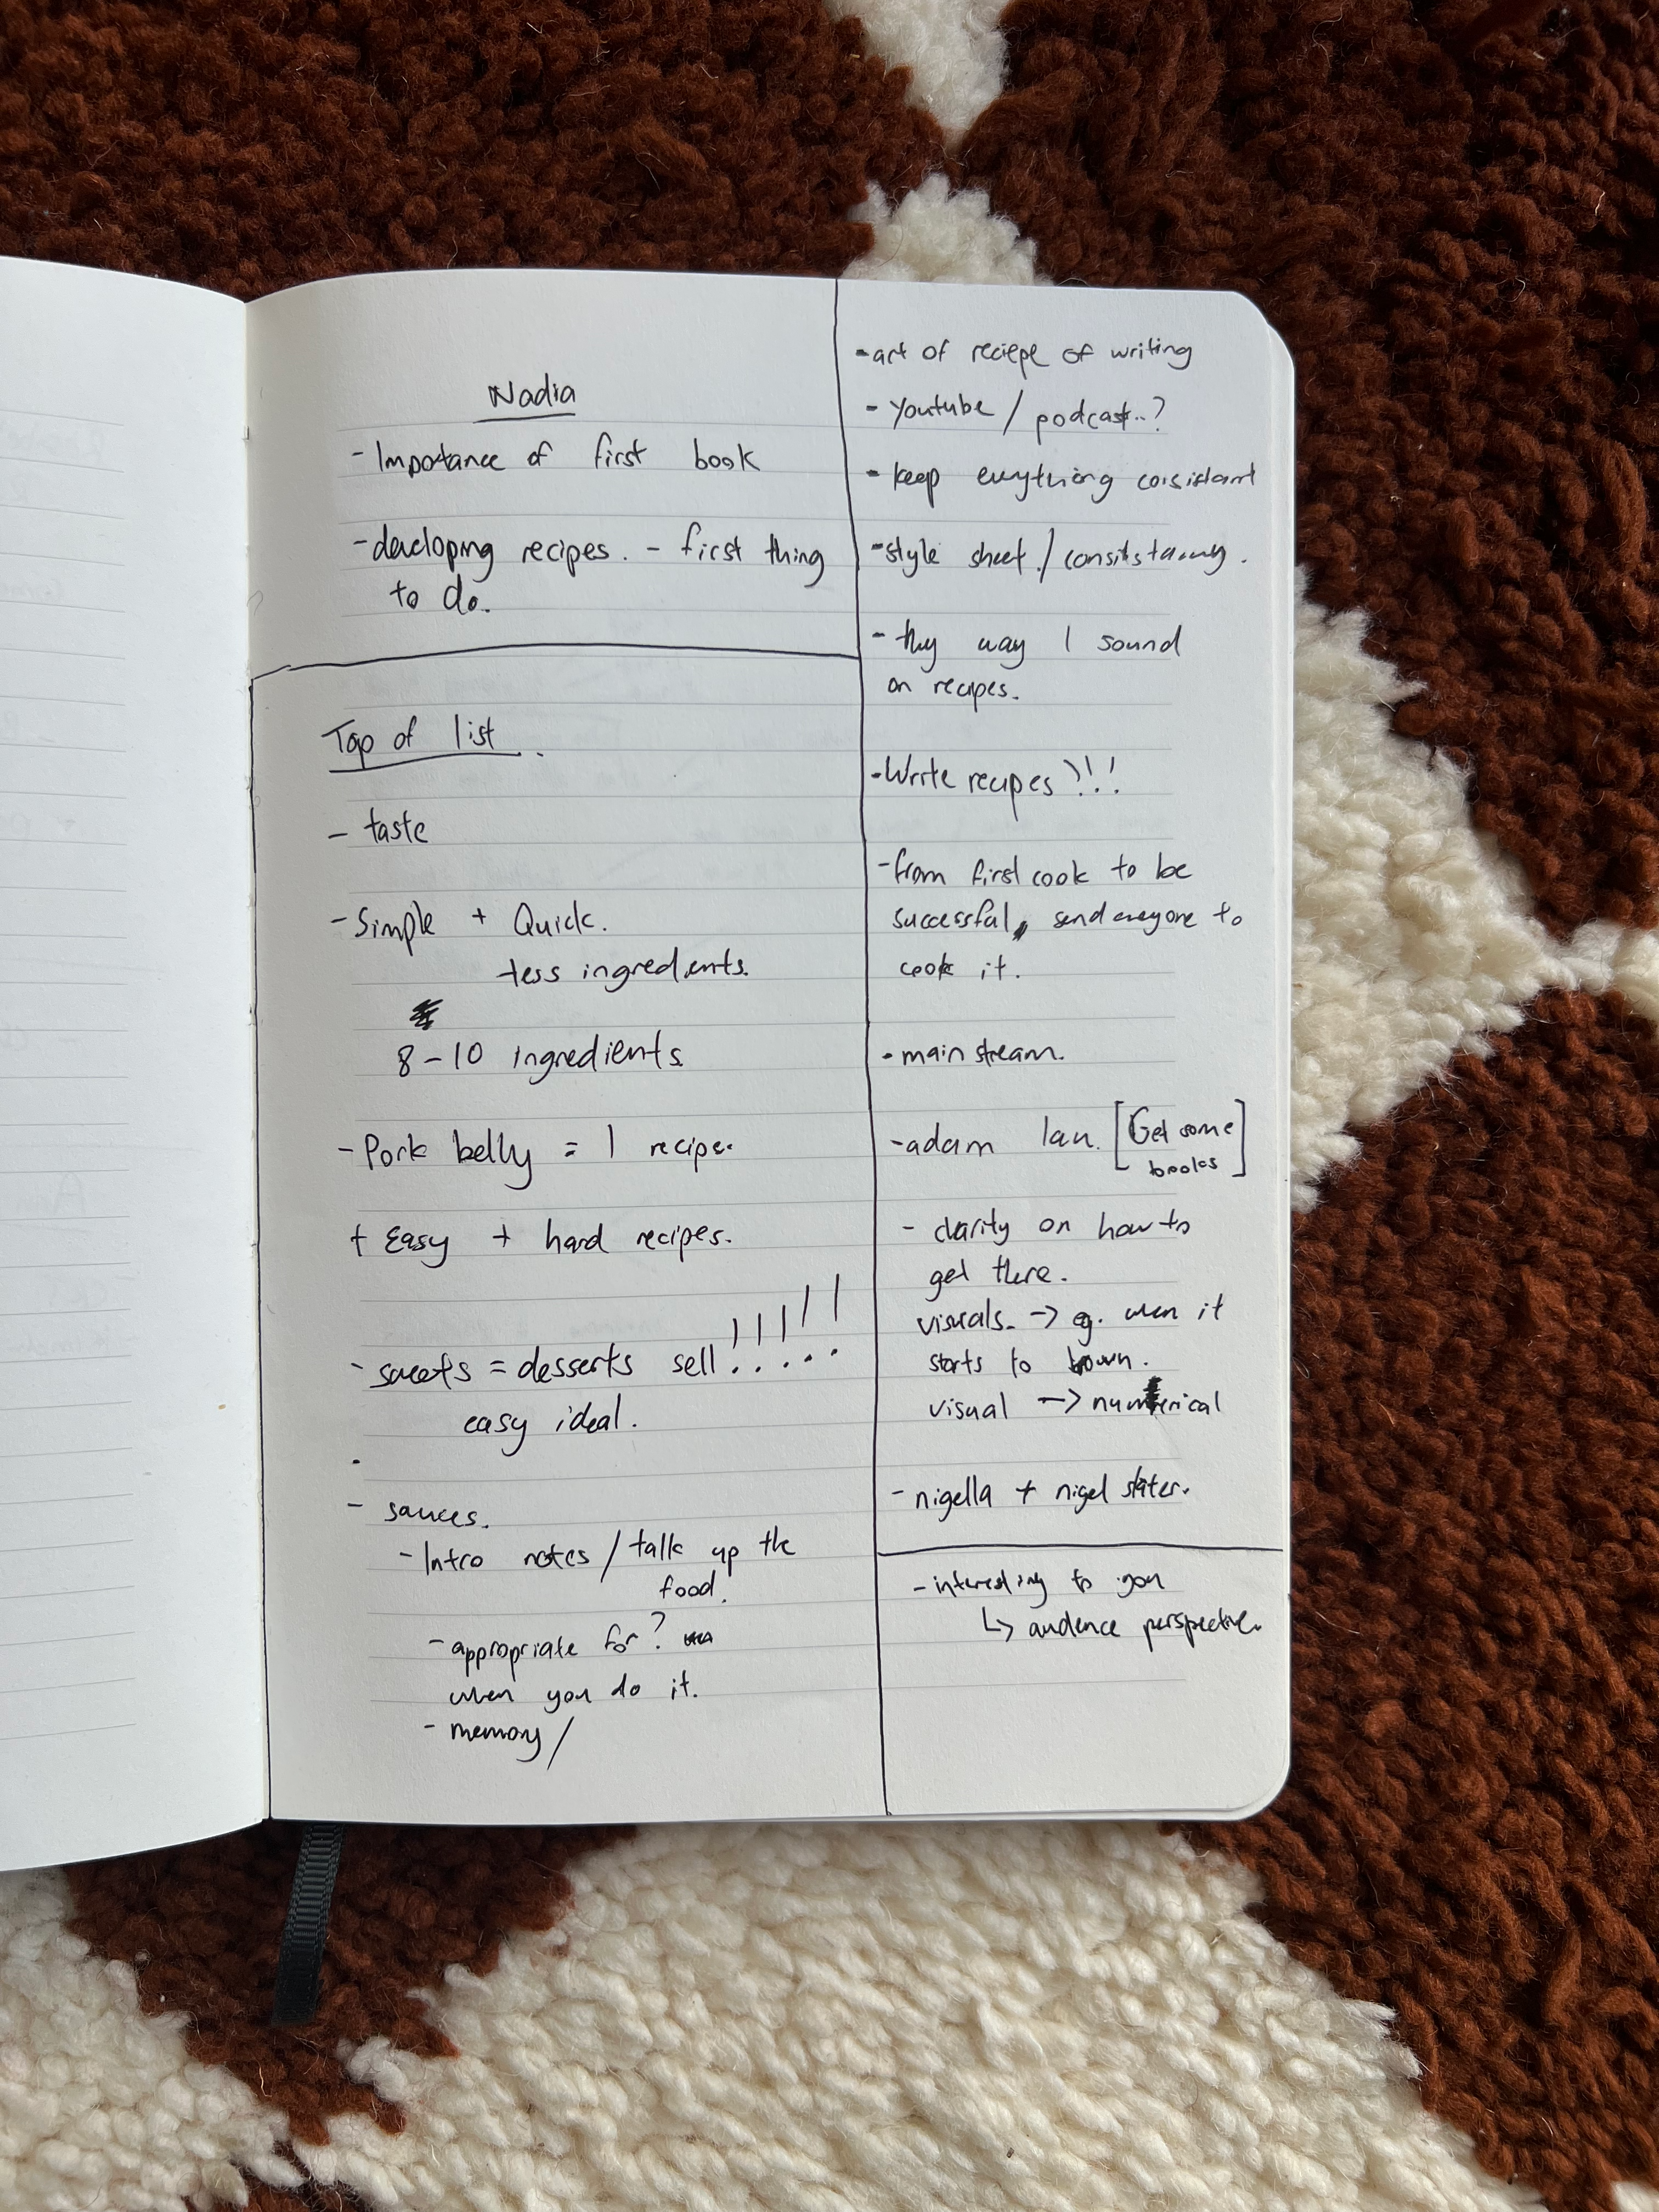 Nadia
- Importance of first book
- developing recipes. - first thing
to do.
Top of list.
- taste
- Simple + Quick.
less ingredients.
8-10 ingredients
- Pork belly = 1 recipe.
+ Easy + hard recipes.
- sweets = desserts sell !!!!!
easy ideal.
- sauces.
- Intro notes / talk up the
food.
- appropriate for?
when you do it.
- memory /
- art of reciepe of writing
- Youtube / podcast..?
- keep everything consistant
- style sheet. /
- they way I sound
on recipes.
- Write recipes !!!
- from first cook to be
successful, send everyone to
cook it.
- main stream.
- adam [Get some
books]
- clarity on how to
get there.
visuals. -> eg. when it
starts to brown.
visual -> numerical
- nigella + nigel slater.
- interesting to you
↳ audence perspective.